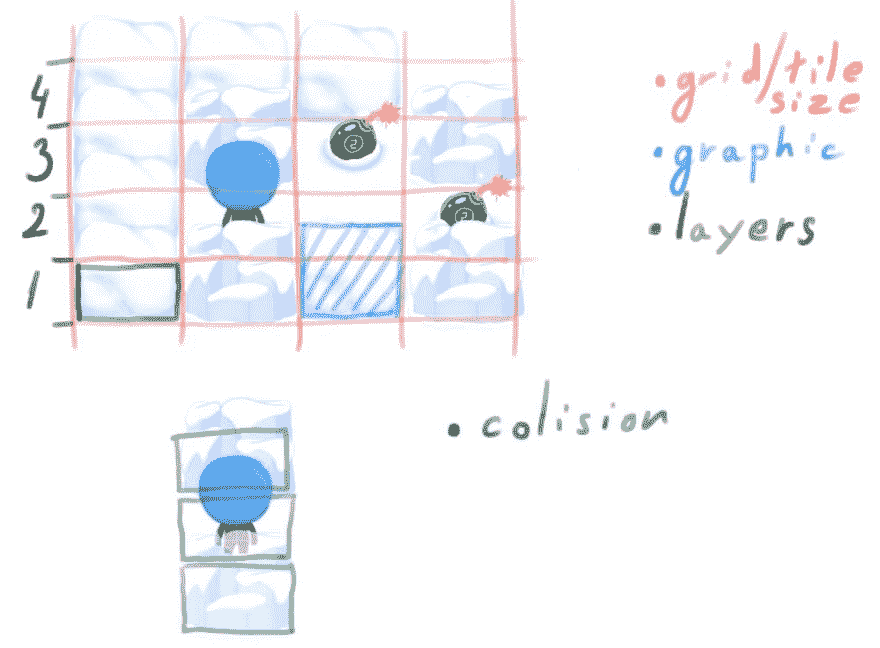 4
3
2
1
2
2
• grid/tile
size
• graphic
• layers
• colision